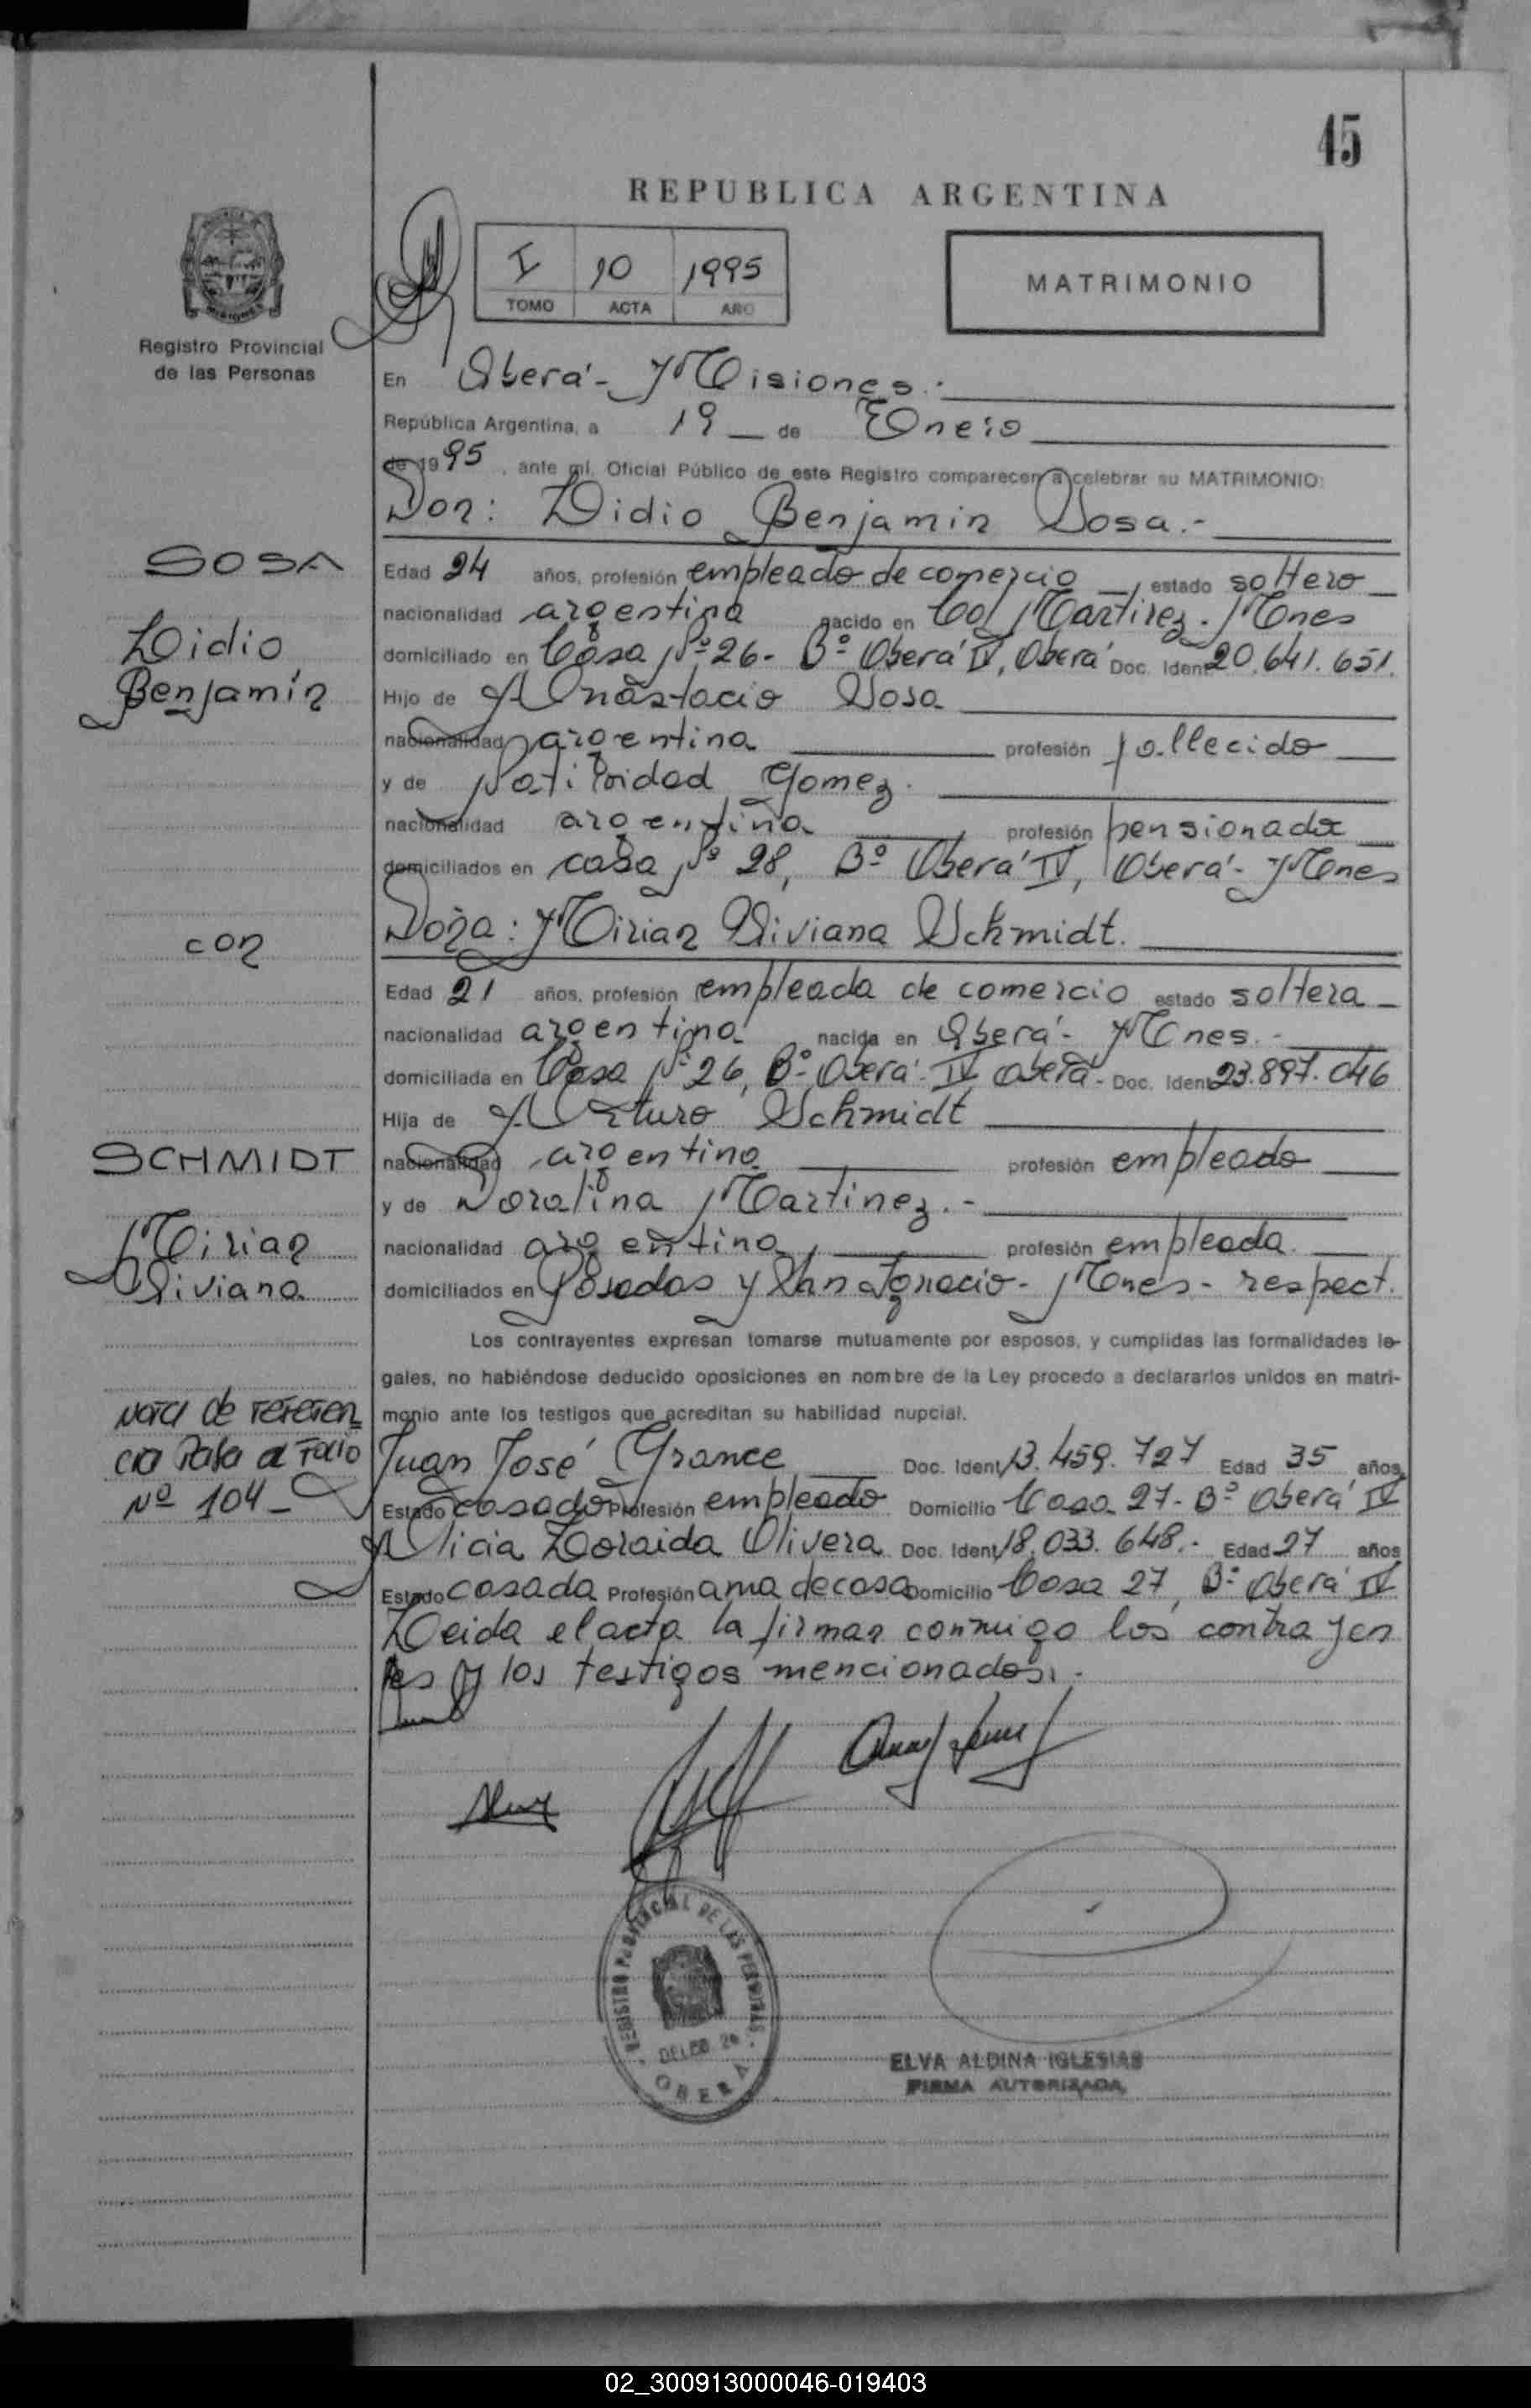 45
REPUBLICA ARGENTINA
I 10 1995
TOMO ACTA AÑO
MATRIMONIO
Registro Provincial
de las Personas
En Oberá - Misiones.-
República Argentina, a 19 de Enero
de 1995, ante mí, Oficial Público de este Registro comparecen a celebrar su MATRIMONIO:
Don: Lidio Benjamin Sosa.-
SOSA
Lidio
Benjamín
Edad 24 años, profesión empleado de comercio, estado soltero
nacionalidad argentina nacido en Col Martirez. Mnes
domiciliado en Casa Nº 26 - Bº Oberá IV, Oberá Doc. Ident 20.641.651.
Hijo de Anastacio Sosa
nacionalidad argentina profesión fallecido
y de Natividad Gomez.
nacionalidad argentina, profesión pensionada
domiciliados en casa Nº 28, Bº Oberá IV, Oberá - Mnes
con
Doña: Mirian Viviana Schmidt.
Edad 21 años, profesión empleada de comercio estado soltera
nacionalidad argentina nacida en Oberá - Mnes.-
domiciliada en Casa Nº 26, Bº Oberá IV Oberá - Doc. Ident 23.897.046
Hija de Arturo Schmidt
SCHMIDT
Mirian
Viviana
nacionalidad argentina profesión empleado
y de Doralina Martinez.-
nacionalidad argentina, profesión empleada.
domiciliados en Posadas y San Ignacio - Mnes - respect.
Los contrayentes expresan tomarse mutuamente por esposos, y cumplidas las formalidades le-
gales, no habiéndose deducido oposiciones en nombre de la Ley procedo a declararlos unidos en matri-
monio ante los testigos que acreditan su habilidad nupcial.
Nota de referen
cia Pasa a Folio
Nº 104 -
Juan José Grance Doc. Ident 13.459.727 Edad 35 años,
Estado casado Profesión empleado Domicilio Casa 27 - Bº Oberá IV
Alicia Zoraida Olivera Doc. Ident 18.033.648.- Edad 27 años
Estado casada Profesión ama de casa Domicilio Casa 27, Bº Oberá IV
Leida el acta la firman conmigo los contrayen
tes y los testigos mencionados.-
REGISTRO PROVINCIAL DE LAS PERSONAS
OBERA
ELVA ALDINA IGLESIAS
FIRMA AUTORIZADA
02_300913000046-019403